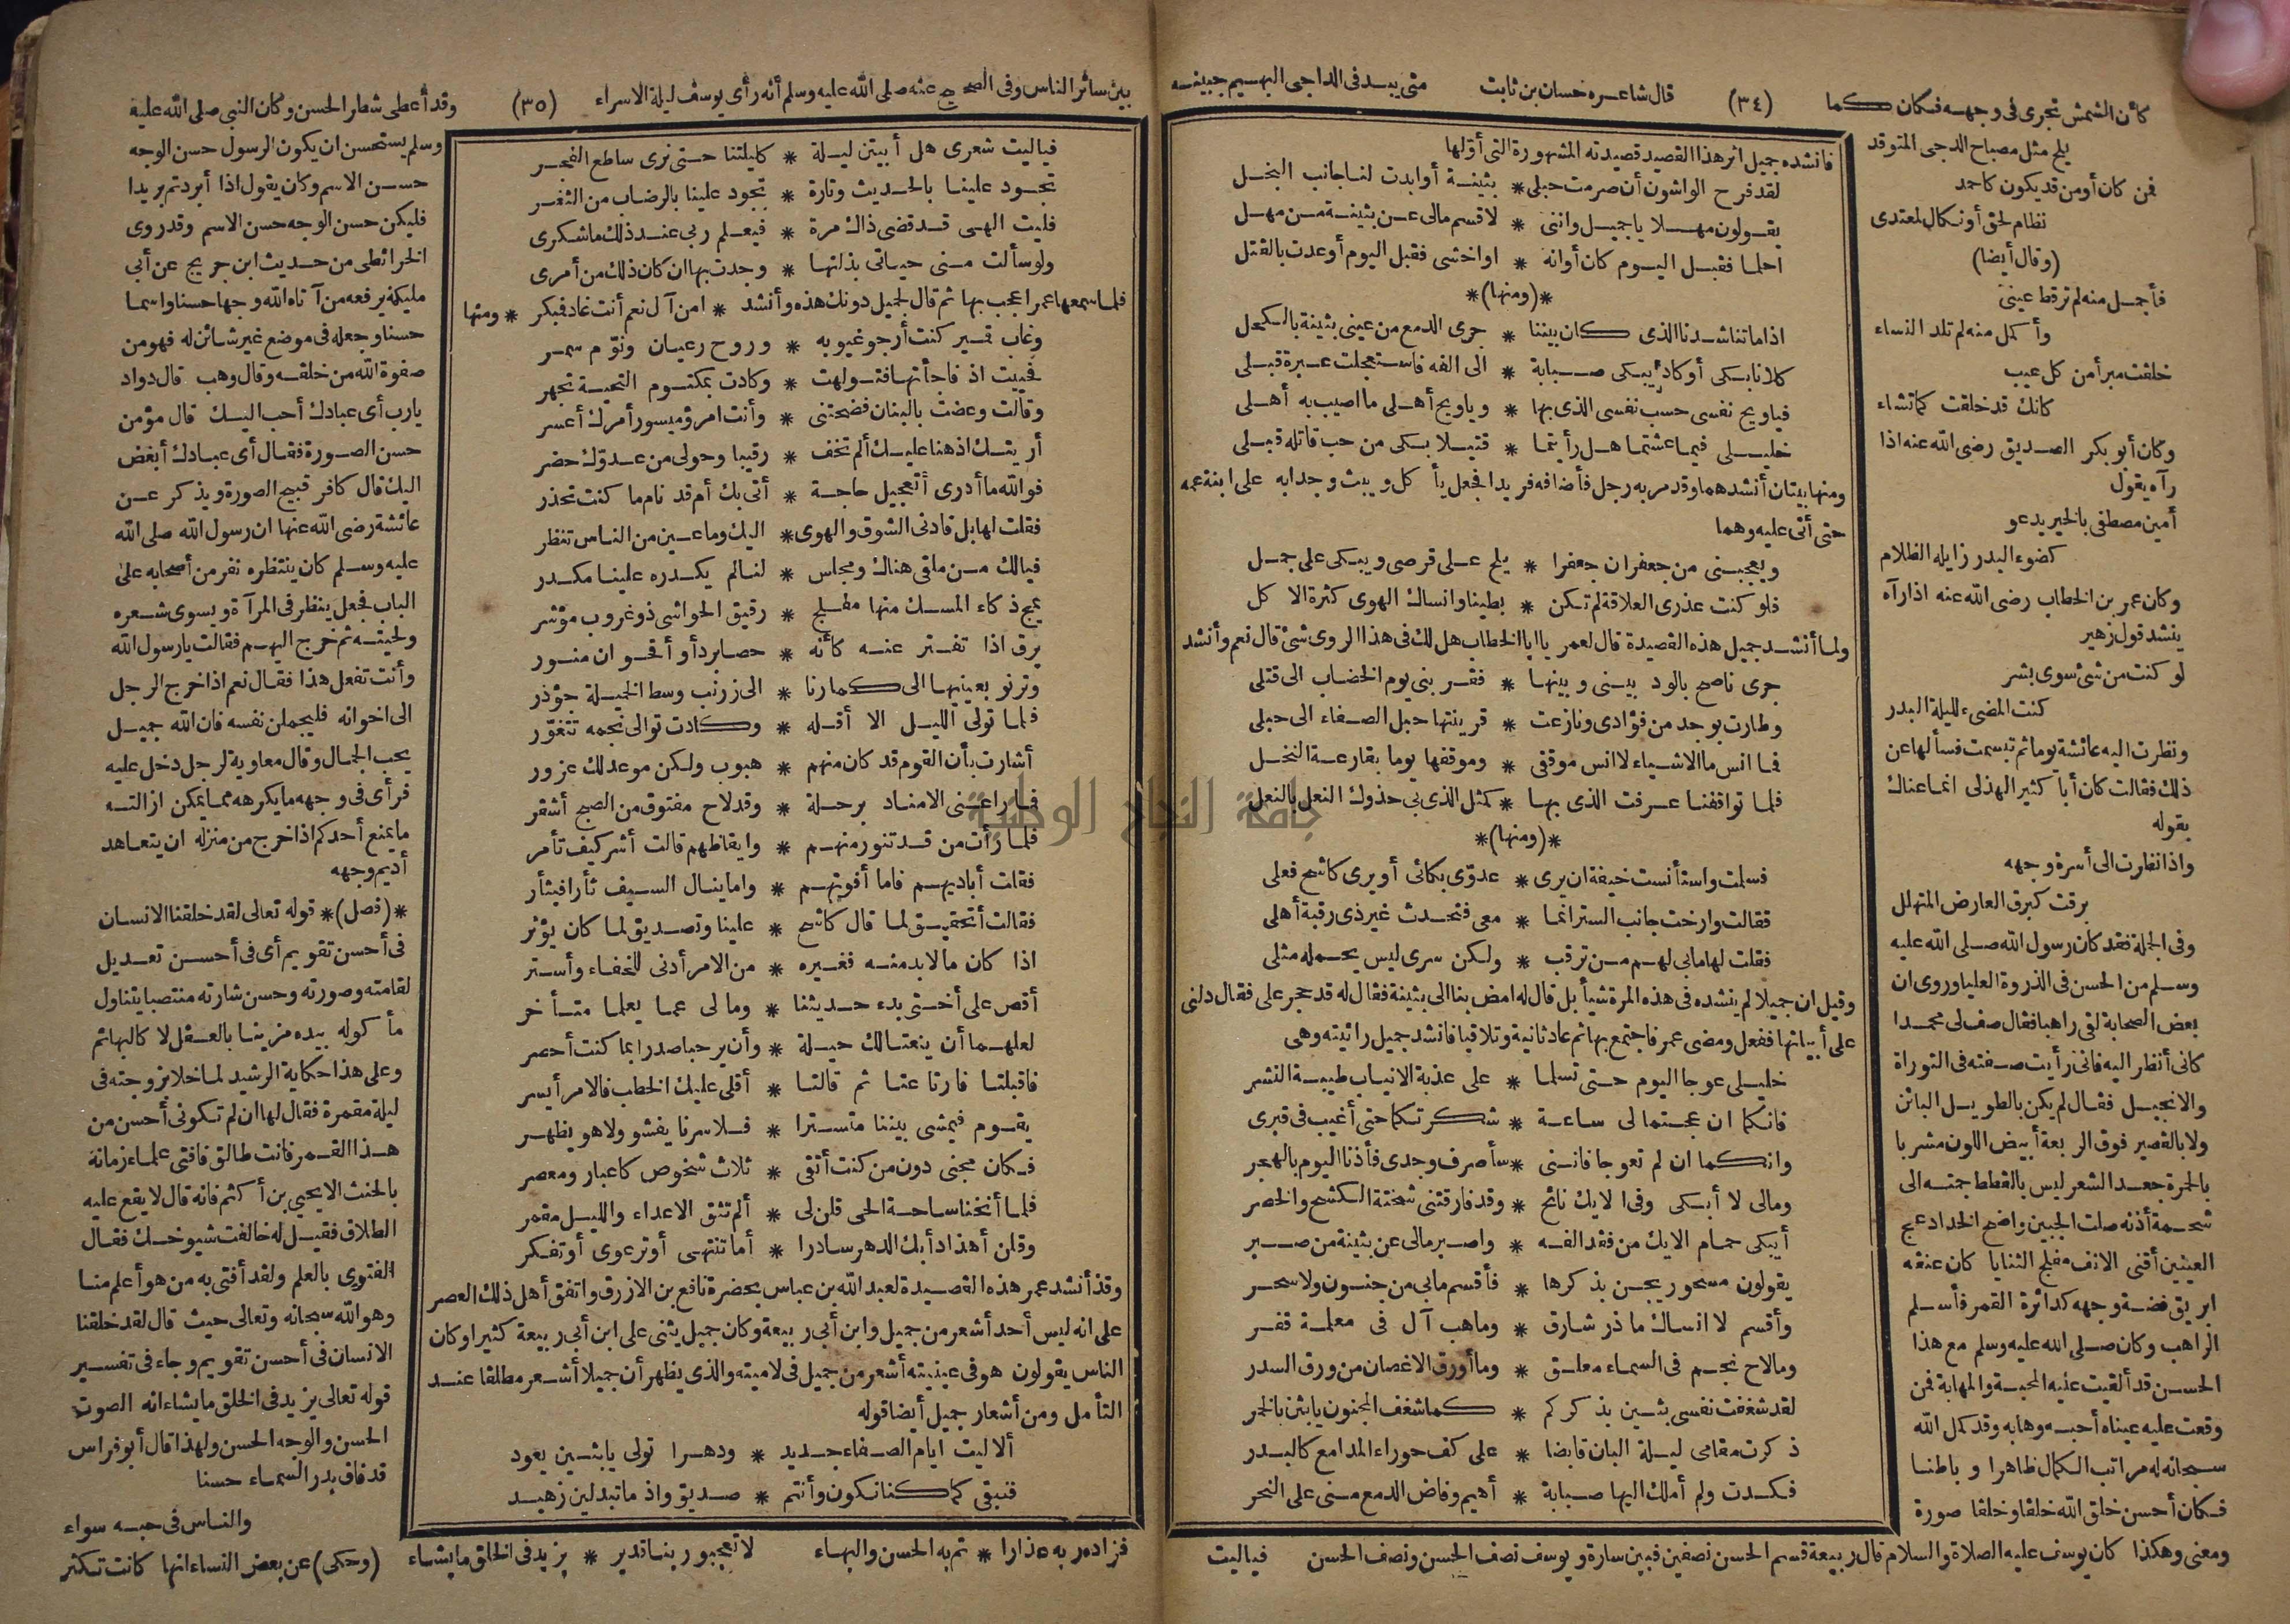 كأن الشمس تجرى فى وجهه فكان كما (٣٤) قال شاعره حسان بن ثابت متى يبد فى الداجى البهيم جبينه
يلح مثل مصباح الدجى المتوقد
فمن كان أو من قد يكون كاحمد
نظام لحق أو نكال لمعتدى
(وقال أيضا)
فأجمل منه لم ترقط عينى
وأكمل منه لم تلد النساء
خلقت مبرأ من كل عيب
كانك قد خلقت كما تشاء
وكان أبو بكر الصديق رضى الله عنه اذا
رآه يقول
أمين مصطفى بالخير يدعو
كضوء البدر زايله الظلام
وكان عمر بن الخطاب رضى الله عنه اذا رآه
ينشد قول زهير
لو كنت من شئ سوى بشر
كنت المضىء لليلة البدر
ونظرت اليه عائشة يوما ثم تبسمت فسألها عن
ذلك فقالت كان أبا كثير الهذلى انما عناك
بقوله
واذا نظرت الى أسرة وجهه
برقت كبرق العارض المتهلل
وفى الجلة فقد كان رسول الله صلى الله عليه
وسلم من الحسن فى الذروة العليا وروى ان
بعض الصحابة لقى راهبا فقال صف لى محمدا
كانى أنظر اليه فانى رأيت صفته فى التوراة
والانجيل فقال لم يكن بالطويل البائن
ولا بالقصير فوق الربعة أبيض اللون مشربا
بالحمرة جعد الشعر ليس بالقطط جمته الى
شحمة أذنه صلت الجبين واضح الخد ادعج
العينين أقنى الانف مفلج الثنايا كان عنقه
ابريق فضة وجهه كدائرة القمر فأسلم
الراهب وكان صلى الله عليه وسلم مع هذا
الحسن قد ألقيت عليه المحبة والمهابة فمن
وقعت عليه عيناه أحبه وهابه وقد كمل الله
سبحانه له مراتب الكمال ظاهرا وباطنا
فكان أحسن خلق الله خلقا وخلقا صورة
فانشده جميل اثر هذا القصيد قصيدته المشهورة التى أولها
لقد فرح الواشون أن صرمت حبلى * بثينة أو أبدت لنا جانب البخل
يقولون مهلا يا جميل واننى * لاقسم مالى عن بثينة من مهل
احلما فقبل اليوم كان أوانه * او اخشى فقبل اليوم أوعدت بالقتل
*(ومنها)*
اذا ما تناشدنا الذى كان بيننا * جرى الدمع من عينى بثينة بالكحل
كلانا بكى أو كاد يبكى صبابة * الى الفه فاستعجلت عبرة قبلى
فياويح نفسى حسب نفسى الذى بها * وياويح أهلى ما اصيب به أهلى
خليلى فيما عشتما هل رأيتما * قتيلا بكى من حب قاتله قبلى
ومنها بيتان أنشدهما وقد مر به رجل فأضافه فريدا فجعل يأكل ويبث وجدا به على ابنة عمه
حتى أتى عليه وهما
ويعجبنى من جعفر ان جعفرا * يلح على قرصى ويبكى على جمل
فلو كنت عذرى العلاقة لم تكن * بطينا وانساك الهوى كثرة الاكل
ولما أنشد جميل هذه القصيدة قال لعمر يا ابا الخطاب هل لك فى هذا الروى شئ قال نعم وأنشد
جرى ناصح بالود بينى وبينها * فقربنى يوم الخضاب الى قتلى
وطارت بوجد من فؤادى ونازعت * قرينتها حبل الصفاء الى حبلى
فما انس ما الاشياء لا انس موقفى * وموقفها يوما بقارعة النخل
فلما تواقفنا عرفت الذى بها * كمثل الذى بى حذوك النعل بالنعل
*(ومنها)*
فسلمت واستأنست خيفة ان يرى * عدوى بكائى أو يرى كاشح فعلى
فقالت وارخت جانب الستر انما * معى فتحدث غير ذى رقبة أهلى
فقلت لها ما بى لهم من ترقب * ولكن سرى ليس يحمله مثلى
وقيل ان جميلا لم ينشده فى هذه المرة شيأ بل قال له امض بنا الى بثينة فقال له قد حجر على فقال دلنى
على أبياتها ففعل ومضى عمر فاجتمع بها ثم عاد ثانية وتلاقيا فانشد جميل رائيته وهى
خليلى عوجا اليوم حتى تسلما * على عذبة الانياب طيبة النشر
فانكما ان عجتما لى ساعة * شكرتكما حتى أغيب فى قبرى
وانكما ان لم تعوجا فاننى * سأصرف وجدى فأذنا اليوم بالهجر
ومالى لا أبكى وفى الايك نائح * وقد فارقتنى شختة الكشح والخصر
أيبكى حمام الايك من فقد الفه * واصبر مالى عن بثينة من صبر
يقولون مسحور يجن بذكرها * فأقسم ما بى من جنون ولا سحر
وأقسم لا انساك ما ذر شارق * وما هب آل فى معلمة قفر
وما لاح نجم فى السماء معلق * وما أورق الاغصان من ورق السدر
لقد شغفت نفسى بثين بذكركم * كما شغف المجنون يا بثن بالخمر
ذكرت مقامى ليلة البان قابضا * على كف حوراء المدامع كالبدر
فكدت ولم أملك اليها صبابة * أهيم وفاض الدمع منى على النحر
ومعنى وهكذا كان يوسف عليه الصلاة والسلام قال ربيعة قسم الحسن نصفين فبين سارة ويوسف نصف الحسن ونصف الحسن فياليت
بين سائر الناس وفى الصحيح عنه صلى الله عليه وسلم أنه رأى يوسف ليلة الاسراء (٣٥) وقد أعطى شطر الحسن وكان النبى صلى الله عليه
فياليت شعرى هل أبيتن ليلة * كليلتنا حتى نرى ساطع الفجر
تجود علينا بالحديث وتارة * تجود علينا بالرضاب من الثغر
فليت الهى قد قضى ذاك مرة * فيعلم ربى عند ذلك ما شكرى
ولو سألت منى حياتى بذلتها * وجدت بها ان كان ذلك من أمرى
فلما سمعها عمر اعجب بها ثم قال لجميل دونك هذه وأنشد * امن آل نعم أنت غاد فمبكر * ومنها
وغاب قمير كنت أرجو غيوبه * وروح رعيان ونوم سمر
فحييت اذ فاجأتها فتولهت * وكادت بمكتوم التحية تجهر
وقالت وعضت بالبنان فضحتنى * وأنت امرؤ ميسور أمرك أعسر
أريتك اذ هنا عليك ألم تخف * رقيبا وحولى من عدوك حضر
فوالله ما أدرى أتعجيل حاجة * أتى بك أم قد نام ما كنت تحذر
فقلت لها بل قادنى الشوق والهوى * اليك وما عين من الناس تنظر
فيالك من ملقى هناك ومجلس * لنا لم يكدره علينا مكدر
يمج ذكاء المسك منها مفلج * رقيق الحواشى ذو غروب مؤشر
يرق اذا تفتر عنه كأنه * حصا برد أو أقحوان منور
وترنو بعينيها الى كما رنا * الى زرنب وسط الخميلة جؤذر
فلما تولى الليل الا أقله * وكادت توالى نجمه تتغور
أشارت بأن القوم قد كان منهم * هبوب ولكن موعد لك عزور
فما راعنى الا مناد برحلة * وقد لاح مفتوق من الصبح أشقر
فلما رأت من قد تنور منهم * وايقاظهم قالت أشر كيف تأمر
فقلت أباديهم فاما أفوتهم * واما ينال السيف ثأرا فيثأر
فقالت أتحقيق لما قال كاشح * علينا وتصديق لما كان يؤثر
اذا كان مالا بد منه فغيره * من الامر أدنى للخفاء وأستر
أقص على أختى بدء حديثنا * ومالى عما يعلما متأخر
لعلهما أن ينعتا لك حيلة * وأن يرحبا صدرا بما كنت أحصر
فاقبلتا فارتاعتا ثم قالتا * أقلى عليك الخطب فالامر أيسر
يقوم فيمشى بيننا متسترا * فلا سرنا يفشو ولا هو يظهر
فكان مجنى دون من كنت أتقى * ثلاث شخوص كاعبار ومعصر
فلما أنخنا ساحة الحى قلن لى * ألم تتق الاعداء والليل مقمر
وقلن أهذا دأبك الدهر سادرا * أما تنتهى أو ترعوى أو تفكر
وقد أنشد عمر هذه القصيدة لعبد الله بن عباس بحضرة نافع بن الازرق واتفق أهل ذلك العصر
على انه ليس أحد أشعر من جميل وابن أبى ربيعة وكان جميل يثنى على ابن أبى ربيعة كثيرا وكان
الناس يقولون هو فى عينيته أشعر من جميل فى لاميته والذى يظهر أن جميلا أشعر مطلقا عند
التأمل ومن أشعار جميل أيضا قوله
ألا ليت ايام الصفاء جديد * ودهرا تولى يا بثين يعود
فنبقى كما كنا نكون وأنتم * صديق واذ ما تبدلين زهيد
وسلم يستحسن ان يكون الرسول حسن الوجه
حسن الاسم وكان يقول اذا أبردتم بريدا
فليكن حسن الوجه حسن الاسم وقد روى
الخرائطى من حديث ابن جريج عن أبى
مليكة يرفعه من آتاه الله وجها حسنا واسما
حسنا وجعله فى موضع غير شائن له فهو من
صفوة الله من خلقه وقال وهب قال دواد
يارب أى عبادك أحب اليك قال مؤمن
حسن الصورة فقال أى عبادك أبغض
اليك قال كافر قبيح الصورة ويذكر عن
عائشة رضى الله عنها ان رسول الله صلى الله
عليه وسلم كان ينتظره نفر من أصحابه على
الباب فجعل ينظر فى المرآة ويسوى شعره
ولحيته ثم خرج اليهم فقالت يا رسول الله
وأنت تفعل هذا فقال نعم اذا خرج الرجل
الى اخوانه فليجملن نفسه فان الله جميل
يحب الجمال وقال معاوية لرجل دخل عليه
فرأى فى وجهه ما يكرهه مما يمكن ازالته
ما يمنع أحدكم اذا خرج من منزله ان يتعاهد
أديم وجهه
*(فصل)* قوله تعالى لقد خلقنا الانسان
فى أحسن تقويم أى فى أحسن تعديل
لقامته وصورته وحسن شارته منتصبا يتناول
مأكوله بيده مزينا بالعقل لا كالبهائم
وعلى هذا حكاية الرشيد لما خلا بزوجته فى
ليلة مقمرة فقال لها ان لم تكونى أحسن من
هذا القمر فانت طالق فافتى علماء زمانه
بالحنث الا يحيى بن أكثم فانه قال لا يقع عليه
الطلاق فقيل له خالفت شيوخك فقال
الفتوى بالعلم ولقد أفتى به من هو أعلم منا
وهو الله سبحانه وتعالى حيث قال لقد خلقنا
الانسان فى أحسن تقويم وجاء فى تفسير
قوله تعالى يزيد فى الخلق ما يشاء انه الصوت
الحسن والوجه الحسن ولهذا قال أبو فراس
قد فاق بدر السماء حسنا
والناس فى حبه سواء
فزاده ربه عذارا * تم به الحسن والبهاء لا تعجبوا ربنا قدير * يزيد فى الخلق ما يشاء (وحكى) عن بعض النساء انها كانت تكثر
جامعة النجاح الوطنية